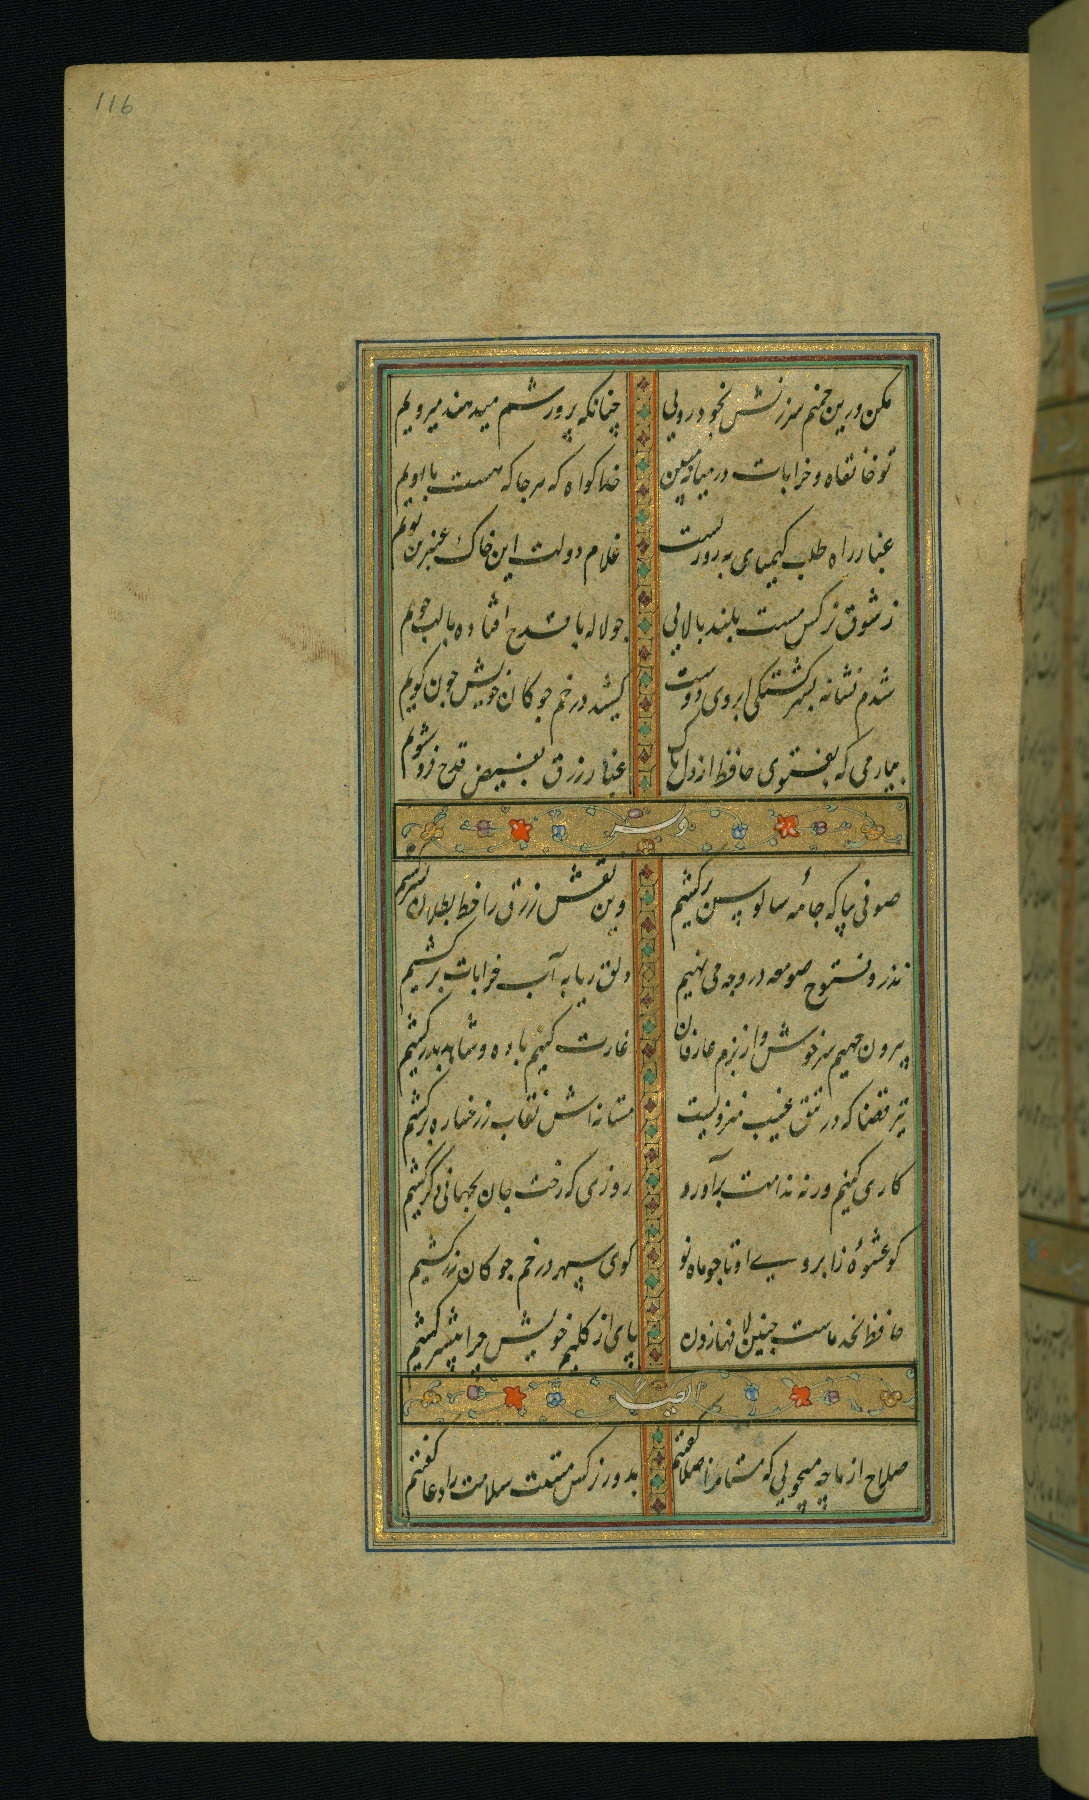 116
مکن درین چمنم سرزنش بخود رویی چنانکه پرورشم میدهند میرویم
تو خانقاه و خرابات در میانه مبین خدا کواه که هر جا که هست بااویم
غبار راه طلب کیمیای بهروزیست غلام دولت این خاک عنبرین بویم
ز شوق نرکس مست بلند بالایی چو لاله با قدح افتاده بالب جویم
شدم نشانه بسرکشتکی ابروی دوست کشید در خم چوکان خویش چون کویم
بیار می که بفتوی حافظ از دل پاک غبار زرق بفیض قدح فروشویم
وله
صوفی بیا که جامهٔ سالوس برکشیم وین نقش زرق را خط بطلان بسر کشیم
نذر و فتوح صومعه در وجه می نهیم دلق ریا به آب خرابات برکشیم
بیرون جهیم سرخوش و از بزم عارفان غارت کنیم باده و شاهد ببر کشیم
سر قضا که در تتق غیب منزویست مستانه اش نقاب ز رخساره برکشیم
کاری کنیم ورنه ندامت برآورد روزی که رخت جان بجهانی دکر کشیم
کو عشوهٔ ز ابروی او تا چو ماه نو کوی سپهر در خم چوکان زر کشیم
حافظ نه حد ماست چنین لافها زدن پای از کلیم خویش چرا بیشتر کشیم
ایضاً
صلاح از ما چه میجویی که مستانرا صلا کفتیم بدور نرکس مستت سلامت را دعا کفتیم